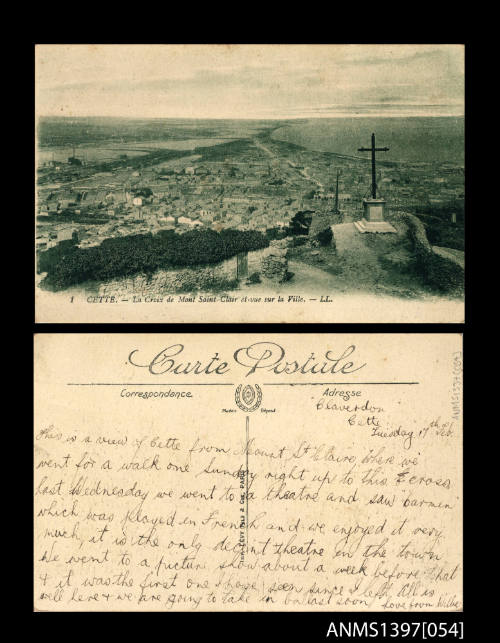 1 CETTE. — La Croix de Mont Saint-Clair et vue sur la Ville. — LL.
Carte Postale
Correspondance
Adresse
Modèle Déposé
LEVY FILS & Cie, PARIS
ANMS1397[054]
"Claverdon"
Cette
Tuesday 17th Feb.
This is a view of Cette from Mount St Claire, where we
went for a walk one Sunday right up to this cross
last Wednesday we went to a theatre and saw Carmen
which was played in French and we enjoyed it very
much, it is the only decent theatre in the town
We went to a picture show about a week before that
& it was the first one I have seen since I left. All is
well here & we are going to take in ballast soon Love from Willie
ANMS1397[054]